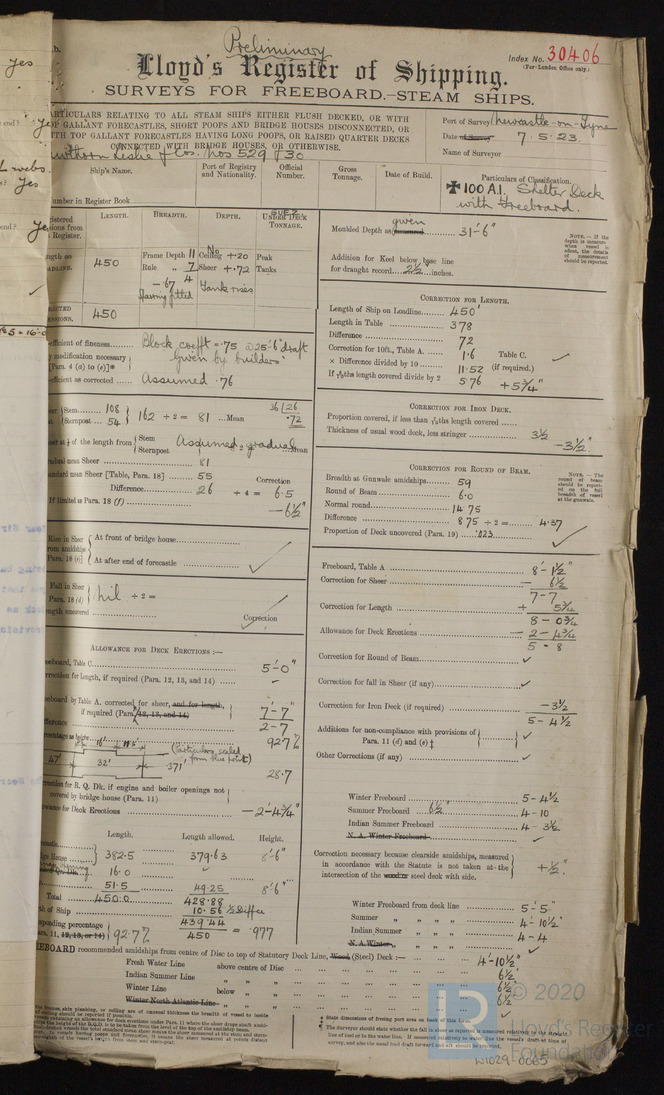 Preliminary
Index No. 30406
(For London Office only.)
Lloyd's Register of Shipping.
SURVEYS FOR FREEBOARD.—STEAM SHIPS.
PARTICULARS RELATING TO ALL STEAM SHIPS EITHER FLUSH DECKED, OR WITH
GALLANT FORECASTLES, SHORT POOPS AND BRIDGE HOUSES DISCONNECTED, OR
TOP GALLANT FORECASTLES HAVING LONG POOPS, OR RAISED QUARTER DECKS
CONNECTED WITH BRIDGE HOUSES, OR OTHERWISE.
Leslie & Cos. Nos 529 & 30
Port of Survey Newcastle-on-Tyne
Date of Survey 7.5.23
Name of Surveyor
Ship's Name.
Port of Registry and Nationality.
Official Number.
Gross Tonnage.
Date of Build.
Particulars of Classification.
✠ 100 A.1. Shelter Deck
with Freeboard.
Number in Register Book
LENGTH. BREADTH. DEPTH. UNDER DECK TONNAGE.
450
Frame Depth 11
Rule „ 7
4
- .67
Having fitted
No Ceiling +.20
Sheer +.72
Tank rises
Peak
Tanks
450
Moulded Depth as given measured 31'-6"
NOTE.—If the depth is measured when vessel is afloat, the details of measurement should be reported.
Addition for Keel below base line
for draught record 2½ inches.
CORRECTION FOR LENGTH.
Length of Ship on Loadline 450'
Length in Table 378
Difference 72
Correction for 10ft., Table A. 1.6 Table C.
× Difference divided by 10 11.52 (if required.)
length covered divide by 2 5.76 +5¾"
Coefficient of fineness Block coefft .75 @ 25'.6" draft
modification necessary given by builders.
[Para. 4 (a) to (e)]*
Coefficient as corrected Assumed .76
Stem 108
Sternpost 54
162 ÷ 2 = 81 Mean
36 | 26
.72
Sheer at ⅛ of the length from Stem
Sternpost
Assumed gradual Mean
Gradual mean Sheer 81
Standard mean Sheer [Table, Para. 18] 55
Correction
Difference 26 ÷ 4 = 6.5
If limited as Para. 18 (f) -6½"
CORRECTION FOR IRON DECK.
Proportion covered, if less than length covered
Thickness of usual wood deck, less stringer 3½
-3½"
CORRECTION FOR ROUND OF BEAM.
Breadth at Gunwale amidships 59
Round of Beam 6.0
Normal round 14.75
Difference 8.75 ÷ 2 = 4.37
Proportion of Deck uncovered (Para. 19) .023
NOTE.—The round of beam should be reported on the full breadth of vessel at the gunwale.
Rise in Sheer from amidships
Para. 18 (e)
At front of bridge house
At after end of forecastle
Fall in Sheer
Para. 18 (d)
nil ÷ 2 =
Length uncovered
Correction
Freeboard, Table A 8'-1½"
Correction for Sheer — 6½
7-7
Correction for Length + 5¾
8-0¾
Allowance for Deck Erections — 2-4¾
5-8
Correction for Round of Beam
Correction for fall in Sheer (if any)
Correction for Iron Deck (if required) -3½
5-4½
Additions for non-compliance with provisions of
Para. 11 (d) and (e) ‡
Other Corrections (if any)
ALLOWANCE FOR DECK ERECTIONS :—
Freeboard, Table C. 5'-0"
Correction for Length, if required (Para. 12, 13, and 14)
Freeboard by Table A. corrected for sheer, and for length,
if required (Para. 12, 13, and 14) 7'-7"
Difference 2-7
Percentage as height 92.7%
(Particulars scaled
from this point)
47'
32'
371'
28.7
Correction for R. Q. Dk. if engine and boiler openings not
covered by bridge house (Para. 11)
Allowance for Deck Erections -2'-4¾"
Length. Length allowed. Height.
Bridge House 382.5 379.63 8'-6"
16.0
51.5 49.25 8'6"
Total 450.0 428.88
Length of Ship 10.56 ½ Differ
439.44
450 = .977
Corresponding percentage
Para. 11, 12, 13, or 14 92.7%
Winter Freeboard 5-4½
Summer Freeboard 6½" 4-10
Indian Summer Freeboard 4-3½
N. A. Winter Freeboard
Correction necessary because clearside amidships, measured
in accordance with the Statute is not taken at the
intersection of the wood or steel deck with side.
+½"
Winter Freeboard from deck line 5'-5"
Summer „ „ „ 4-10½"
Indian Summer „ „ „ 4-4
N.A. Winter „ „ „
FREEBOARD recommended amidships from centre of Disc to top of Statutory Deck Line, Wood (Steel) Deck :— 4'-10½"
Fresh Water Line above centre of Disc 6½"
Indian Summer Line „ „ 6½"
Winter Line below „ „ 6½"
Winter North Atlantic Line „ „
* State dimensions of freeing port area on back of this form.
© 2020
Lloyd's Register
Foundation
W1029-0065